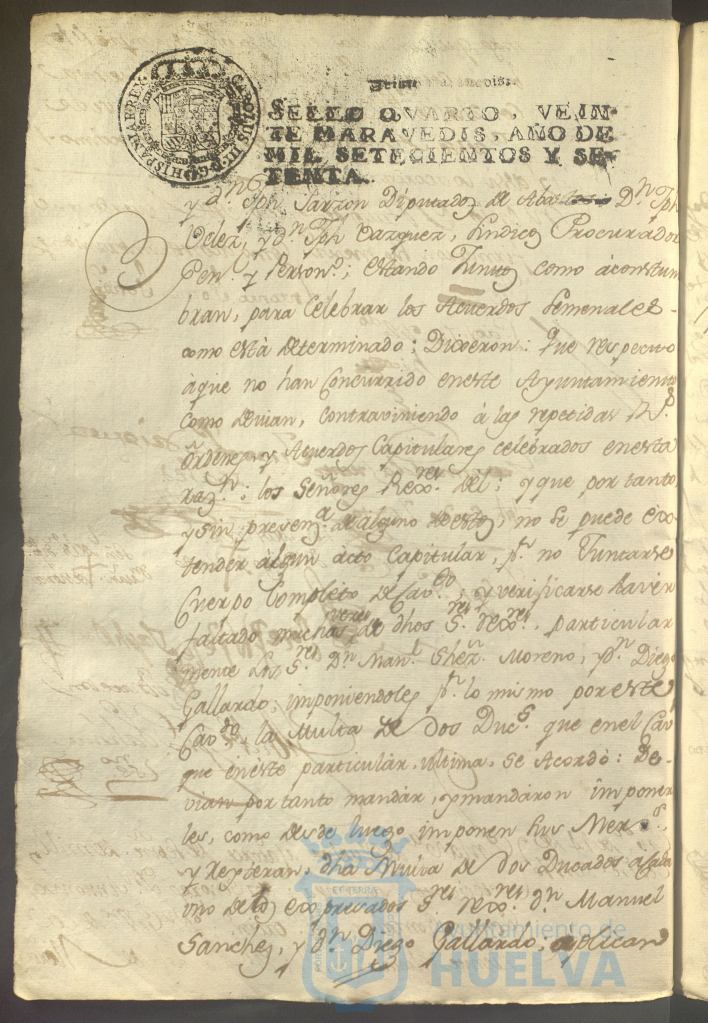 CAROLUS III D G HISPANIAR REX
SELLO QVARTO, VEIN-
TE MARAVEDIS, AÑO DE
MIL SETECIENTOS Y SE-
TENTA.
y dn. Jph Garzon Diputados de Abastos Dn. Jph
Velez, y dn. Jph Vazquez, Sindicos Procurador
Gen.l y Person.o; estando Juntos como acostum
bran, para celebrar los Acuerdos Semenales
como está determinado; Dixeron: Que respecto
aque no han Concurrido eneste Ayuntamiento
como devian, contraviniendo á las repetidas Rs.
Ordenes, y Acuerdos Capitulares celebrados enesta
razn.; los Señores Rexores. del; y que por tanto,
y sin de alguno de estos, no se puede ex-
tender algun acto Capitular, pr. no Juntarse
Cuerpo Completo de Cavdo; y verificarse haver
faltado muchas veces de dhos Sres. rexres. particular
mente los Sres. Dn. Manl. Shez. Moreno, y Dn. Diego
Gallardo, imponiendoles pr. lo mismo por este
Cavdo. la Multa de dos Ducs. que enel Cav
que eneste particular, ultima. se Acordó: De-
vian por tanto mandar, y mandaron imponer
les, como desde luego imponen sus Merds.
y Reyteran, dha Multa de dos Ducados a cada
uno de los expresados Sres. rexres. dn. Manuel
Sanchez, y dn. Diego Gallardo, aplican
Ayuntamiento de
HUELVA